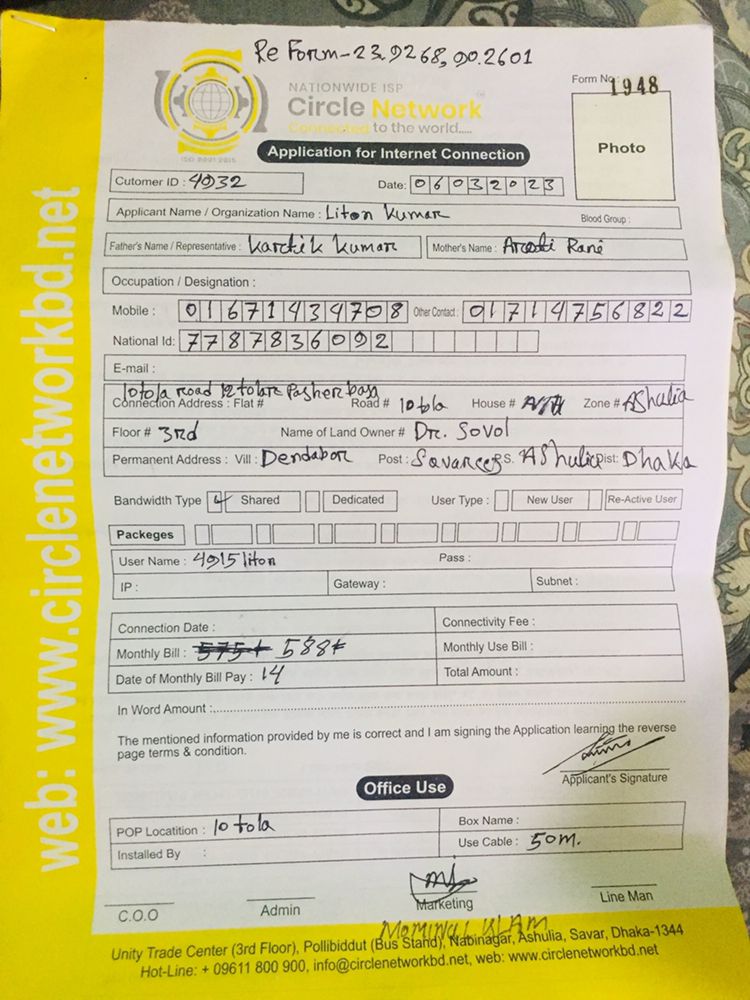 Re Form-23.9268, 90.2601
NATIONWIDE ISP
Circle Network
Connected to the world.....
ISO 9001:2015
Form No 1948
Photo
Application for Internet Connection
Cutomer ID : 4932
Date: 06032023
Applicant Name / Organization Name : Liton Kumar
Blood Group :
Father's Name / Representative : Kartik Kumar
Mother's Name : Arati Rani
Occupation / Designation :
Mobile : 01671434708 Other Contact : 01714756822
National Id: 7787836092
E-mail :
10tola road 12tolar Pasher basa
Connection Address : Flat # Road # 10tola House # Zone # AShulia
Floor # 3rd Name of Land Owner # Dr. Sovol
Permanent Address : Vill : Dendabor Post : P.S. AShulia Dist: Dhaka
Bandwidth Type 4 Shared Dedicated User Type : New User Re-Active User
Packeges
User Name : 4915liton Pass :
IP : Gateway : Subnet :
Connection Date : Connectivity Fee :
Monthly Bill : 575 588 Monthly Use Bill :
Date of Monthly Bill Pay : 14 Total Amount :
In Word Amount :
The mentioned information provided by me is correct and I am signing the Application learning the reverse
page terms & condition.
Applicant's Signature
Office Use
POP Locatition : 10 tola Box Name :
Installed By : Use Cable : 50m.
C.O.O Admin Marketing Line Man
Mominul ISLAM
Unity Trade Center (3rd Floor), Pollibiddut (Bus Stand), Nabinagar, Ashulia, Savar, Dhaka-1344
Hot-Line: + 09611 800 900, info@circlenetworkbd.net, web: www.circlenetworkbd.net
web: www.circlenetworkbd.net